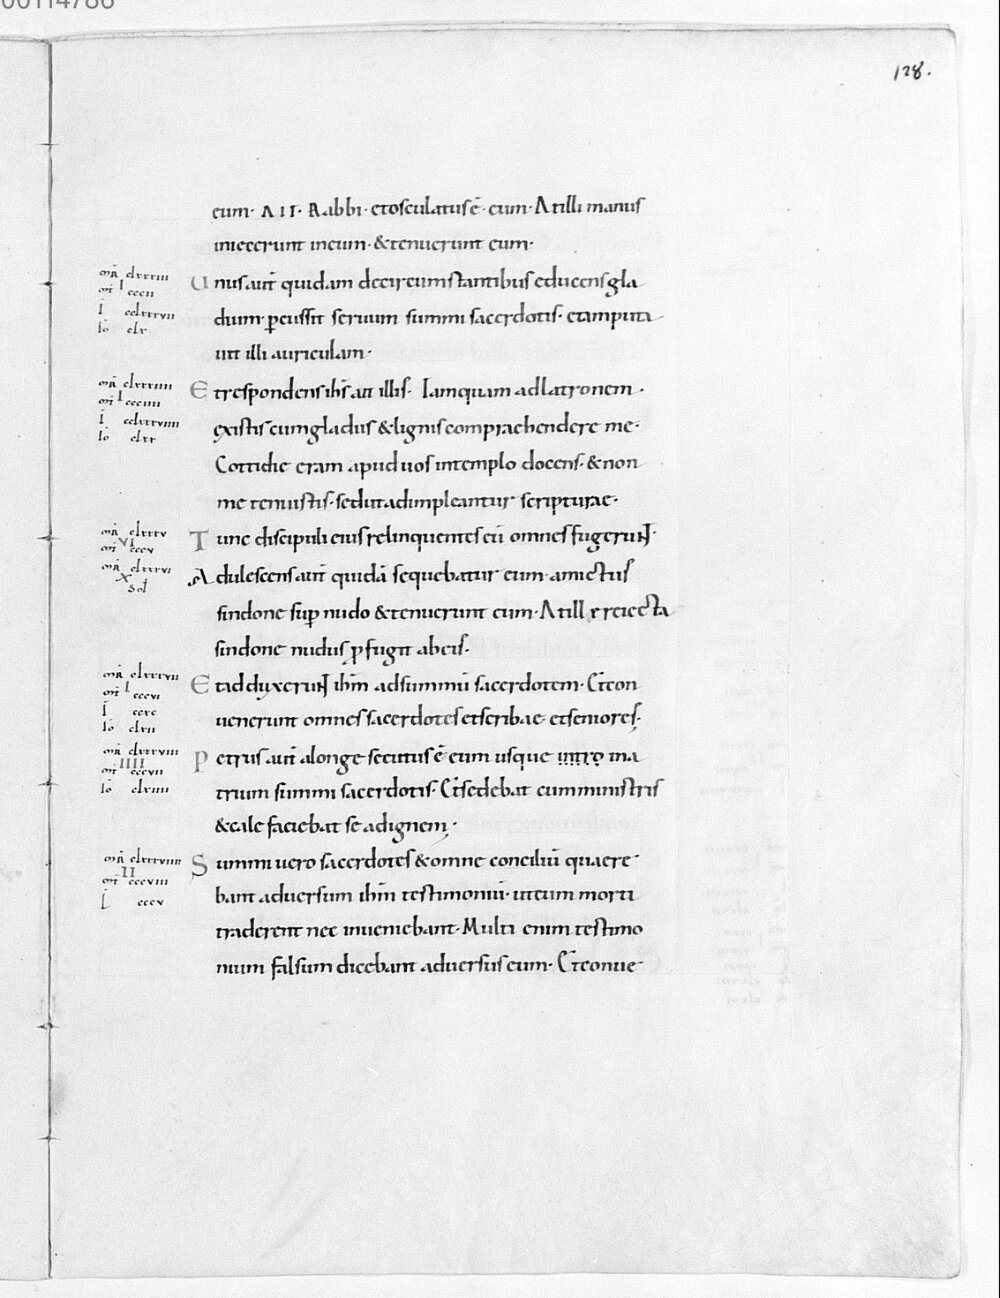 00114786
128.
eum· AIT· Rabbi· &osculatus ē· eum· At illi manus
iniecerunt in eum· & tenuerunt eum·
mr̄ clxxxiii
mt I cccii
I cclxxxvii
lo clx
Unus aut̄ quidam de circumstantibus educens gla
dium· ꝑcussit seruum summi sacerdotis· et amputa
uit illi auriculam·
mr̄ clxxxiiii
mt I ccciiii
I cclxxxviiii
lo clxx
Et respondens ih̄s ait illis· Tamquam ad latronem·
existis cum gladiis & lignis comprachendere me·
Cottidie eram apud uos in templo docens· & non
me tenuistis· sed ut adimpleantur scripturae·
mr̄ clxxxv
mt VI cccv
Tunc discipuli eius relinquentes eū omnes fugerunt·
mr̄ clxxxvi
X sol
Adulescens aut̄ quidā sequebatur eum· amictus
sindone suꝑ nudo & tenuerunt eum· At ille reiecta
sindone nudus ꝓfugit ab eis·
mr̄ clxxxvii
mt I cccvi
I cccc
lo clxii
Et adduxerunt ih̄m ad summū sacerdotem· Et con
uenerunt omnes sacerdotes et scribae et seniores·
mr̄ clxxxviii
mt IIII cccvii
lo clxiiii
Petrus aut̄ a longe secutus ē eum usque intro in a
trium summi sacerdotis· Et sedebat cum ministris
& calefaciebat se ad ignem·
mr̄ clxxxviiii
mt II cccviii
L cccv
Summi uero sacerdotes & omne conciliū quaere
bant aduersum ih̄m testimoniū· ut eum morti
traderent nec inueniebant· Multi enim testimo
nium falsum dicebant aduersus eum· Et conue